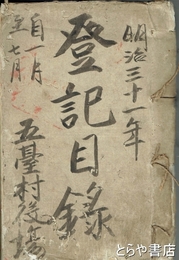 明治三十一年
登記目錄
自一月
至七月
五臺村役場
とらや書店